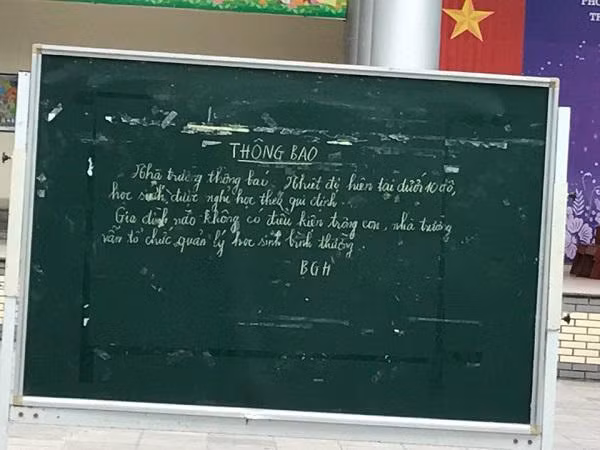 PHO
TR
THÔNG BÁO
Nhà trường thông báo: Nhiệt độ hiện tại dưới 10 độ,
học sinh được nghỉ học theo qui định.
Gia đình nào không có điều kiện trông con, nhà trường
vẫn tổ chức quản lý học sinh bình thường.
BGH